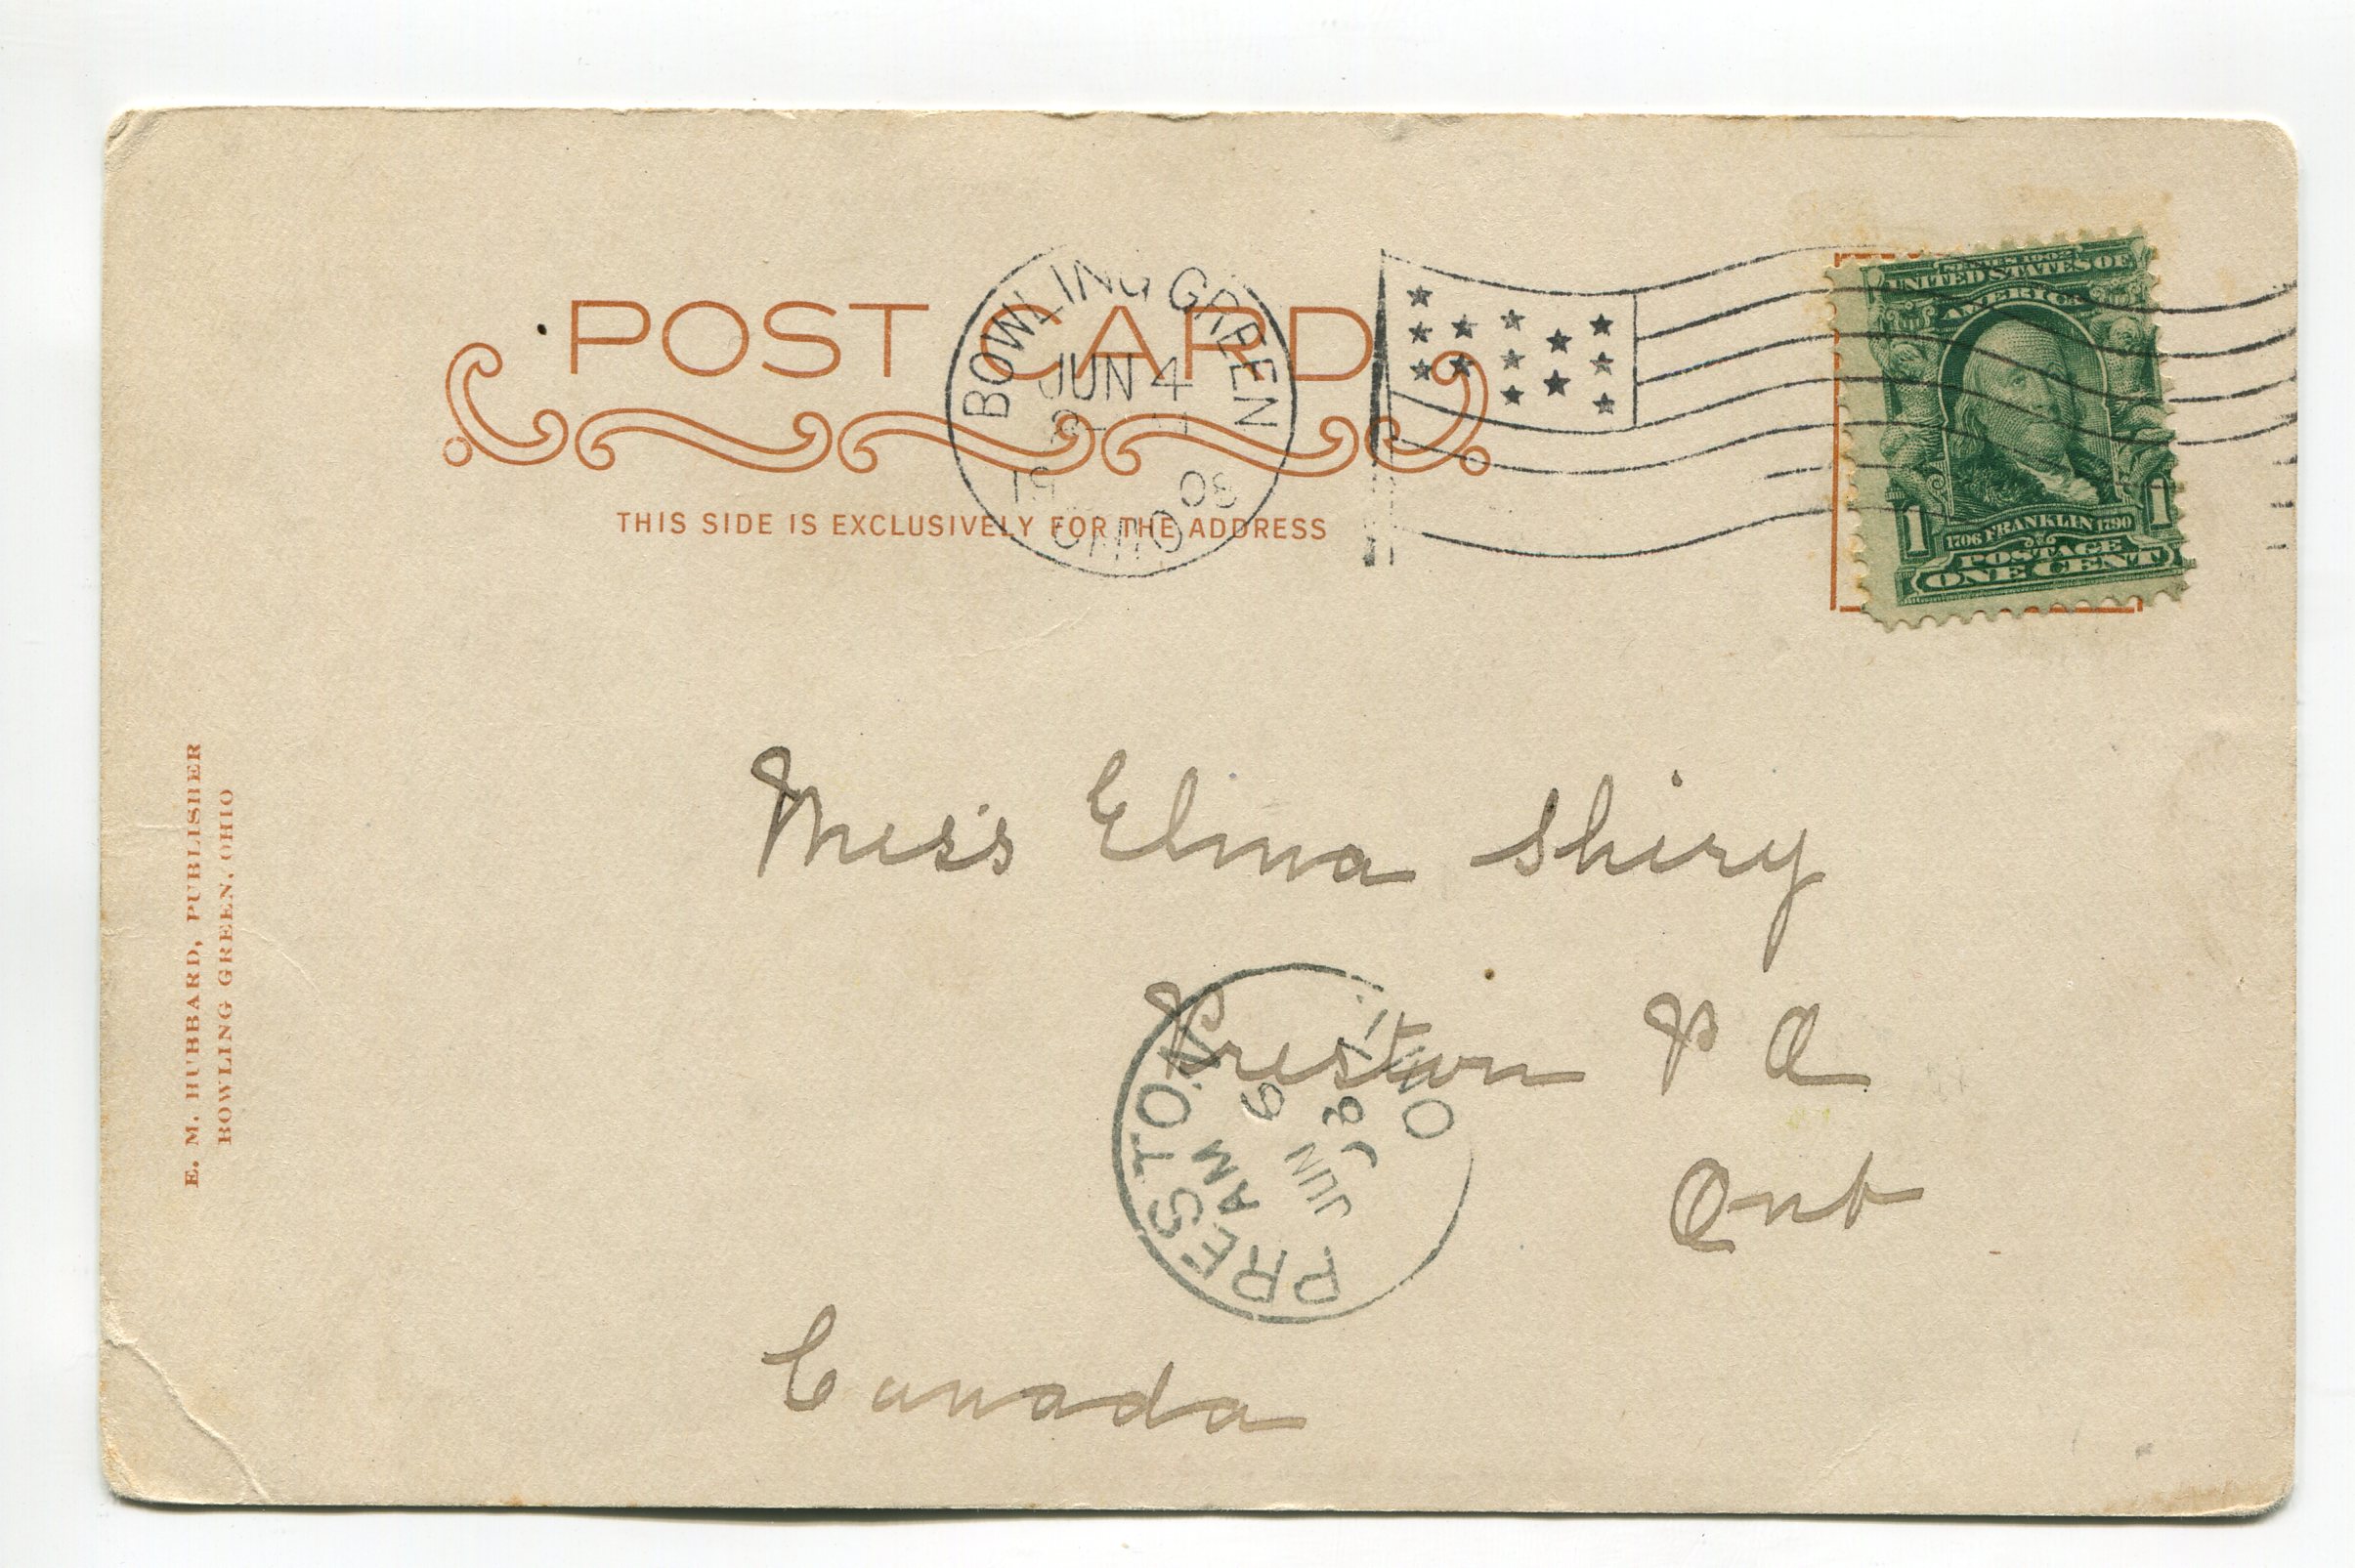 POST CARD
THIS SIDE IS EXCLUSIVELY FOR THE ADDRESS
BOWLING GREEN
JUN 4
19 08
OHIO
SERIES 1902
UNITED STATES OF
AMERICA
1 1
1706 FRANKLIN 1790
POSTAGE
ONE CENT
E. M. HUBBARD, PUBLISHER
BOWLING GREEN, OHIO
Miss Elma Shiry
Preston P O
Ont
Canada
PRESTON
AM
JUN 6
08
ONT